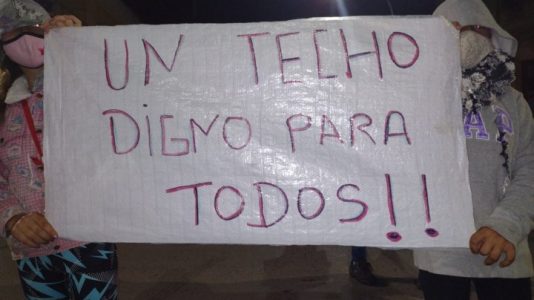 UN TECHO
DIGNO PARA
TODOS!!